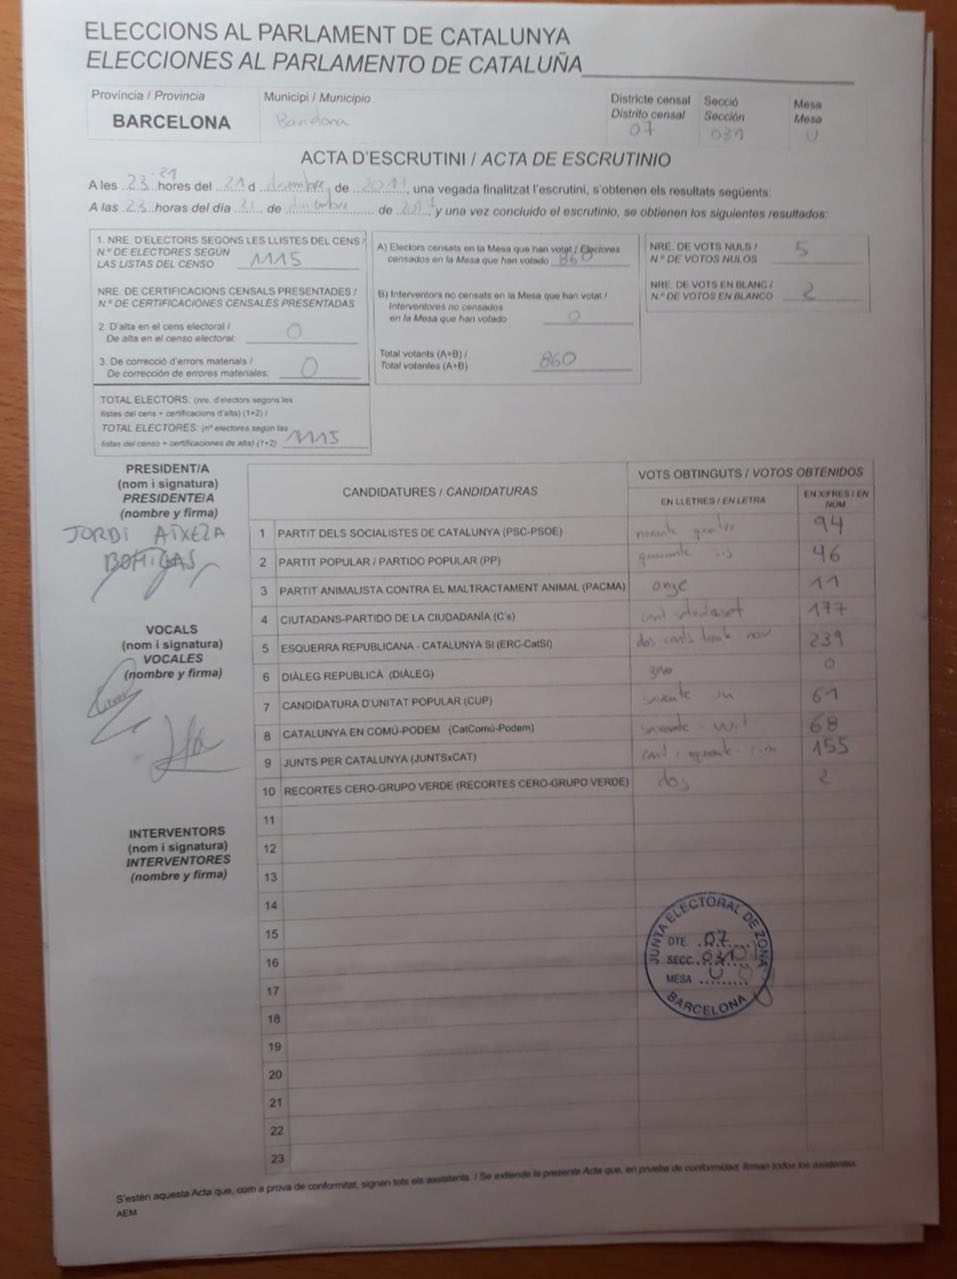 ELECCIONS AL PARLAMENT DE CATALUNYA
ELECCIONES AL PARLAMENTO DE CATALUÑA
Província / Provincia
BARCELONA
Municipi / Municipio
Barcelona
Districte censal
Distrito censal
07
Secció
Sección
031
Mesa
Mesa
U
ACTA D'ESCRUTINI / ACTA DE ESCRUTINIO
A les 23:21 hores del 21 d desembre, de 2017, una vegada finalitzat l'escrutini, s'obtenen els resultats següents:
A las 23 horas del día 21 de diciembre de 2017, y una vez concluido el escrutinio, se obtienen los siguientes resultados:
1. NRE. D'ELECTORS SEGONS LES LLISTES DEL CENS /
N.º DE ELECTORES SEGÚN
LAS LISTAS DEL CENSO 1115
NRE. DE CERTIFICACIONS CENSALS PRESENTADES /
N.º DE CERTIFICACIONES CENSALES PRESENTADAS
2. D'alta en el cens electoral /
De alta en el censo electoral: 0
3. De correcció d'errors materials /
De corrección de errores materiales: 0
TOTAL ELECTORS: (nre. d'electors segons les
llistes del cens + certificacions d'alta) (1+2) /
TOTAL ELECTORES: (nº electores según las
listas del censo + certificaciones de alta) (1+2) 1115
A) Electors censats en la Mesa que han votat / Electores
censados en la Mesa que han votado 860
B) Interventors no censats en la Mesa que han votat /
Interventores no censados
en la Mesa que han votado 0
Total votants (A+B) /
Total votantes (A+B) 860
NRE. DE VOTS NULS /
N.º DE VOTOS NULOS 5
NRE. DE VOTS EN BLANC /
N.º DE VOTOS EN BLANCO 2
PRESIDENT/A
(nom i signatura)
PRESIDENTE/A
(nombre y firma)
JORDI
BOHIGAS
VOCALS
(nom i signatura)
VOCALES
(nombre y firma)
INTERVENTORS
(nom i signatura)
INTERVENTORES
(nombre y firma)
CANDIDATURES / CANDIDATURAS
VOTS OBTINGUTS / VOTOS OBTENIDOS
EN LLETRES / EN LETRA
EN XIFRES / EN NÚM.
1 PARTIT DELS SOCIALISTES DE CATALUNYA (PSC-PSOE) noranta quatre 94
2 PARTIT POPULAR / PARTIDO POPULAR (PP) quaranta sis 46
3 PARTIT ANIMALISTA CONTRA EL MALTRACTAMENT ANIMAL (PACMA) onze 11
4 CIUTADANS-PARTIDO DE LA CIUDADANÍA (C's) 177
5 ESQUERRA REPUBLICANA - CATALUNYA SI (ERC-CatSI) dos cents trenta nou 239
6 DIÀLEG REPUBLICÀ (DIÀLEG) zero 0
7 CANDIDATURA D'UNITAT POPULAR (CUP) 61
8 CATALUNYA EN COMÚ-PODEM (CatComú-Podem) 68
9 JUNTS PER CATALUNYA (JUNTSxCAT) 155
10 RECORTES CERO-GRUPO VERDE (RECORTES CERO-GRUPO VERDE) dos 2
11
12
13
14
15
16
17
18
19
20
21
22
23
JUNTA ELECTORAL DE ZONA
DTE. 07
SECC. 031
MESA U
BARCELONA
S'estén aquesta Acta que, com a prova de conformitat, signen tots els assistents. / Se extiende la presente Acta que, en prueba de conformidad, firman todos los asistentes.
AEM